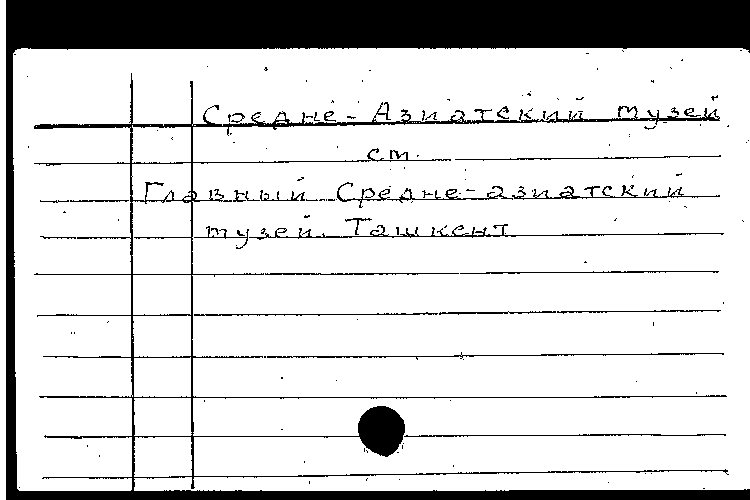 Средне-Азиатский музей
см.
Главный Средне-азиатский
музей. Ташкент